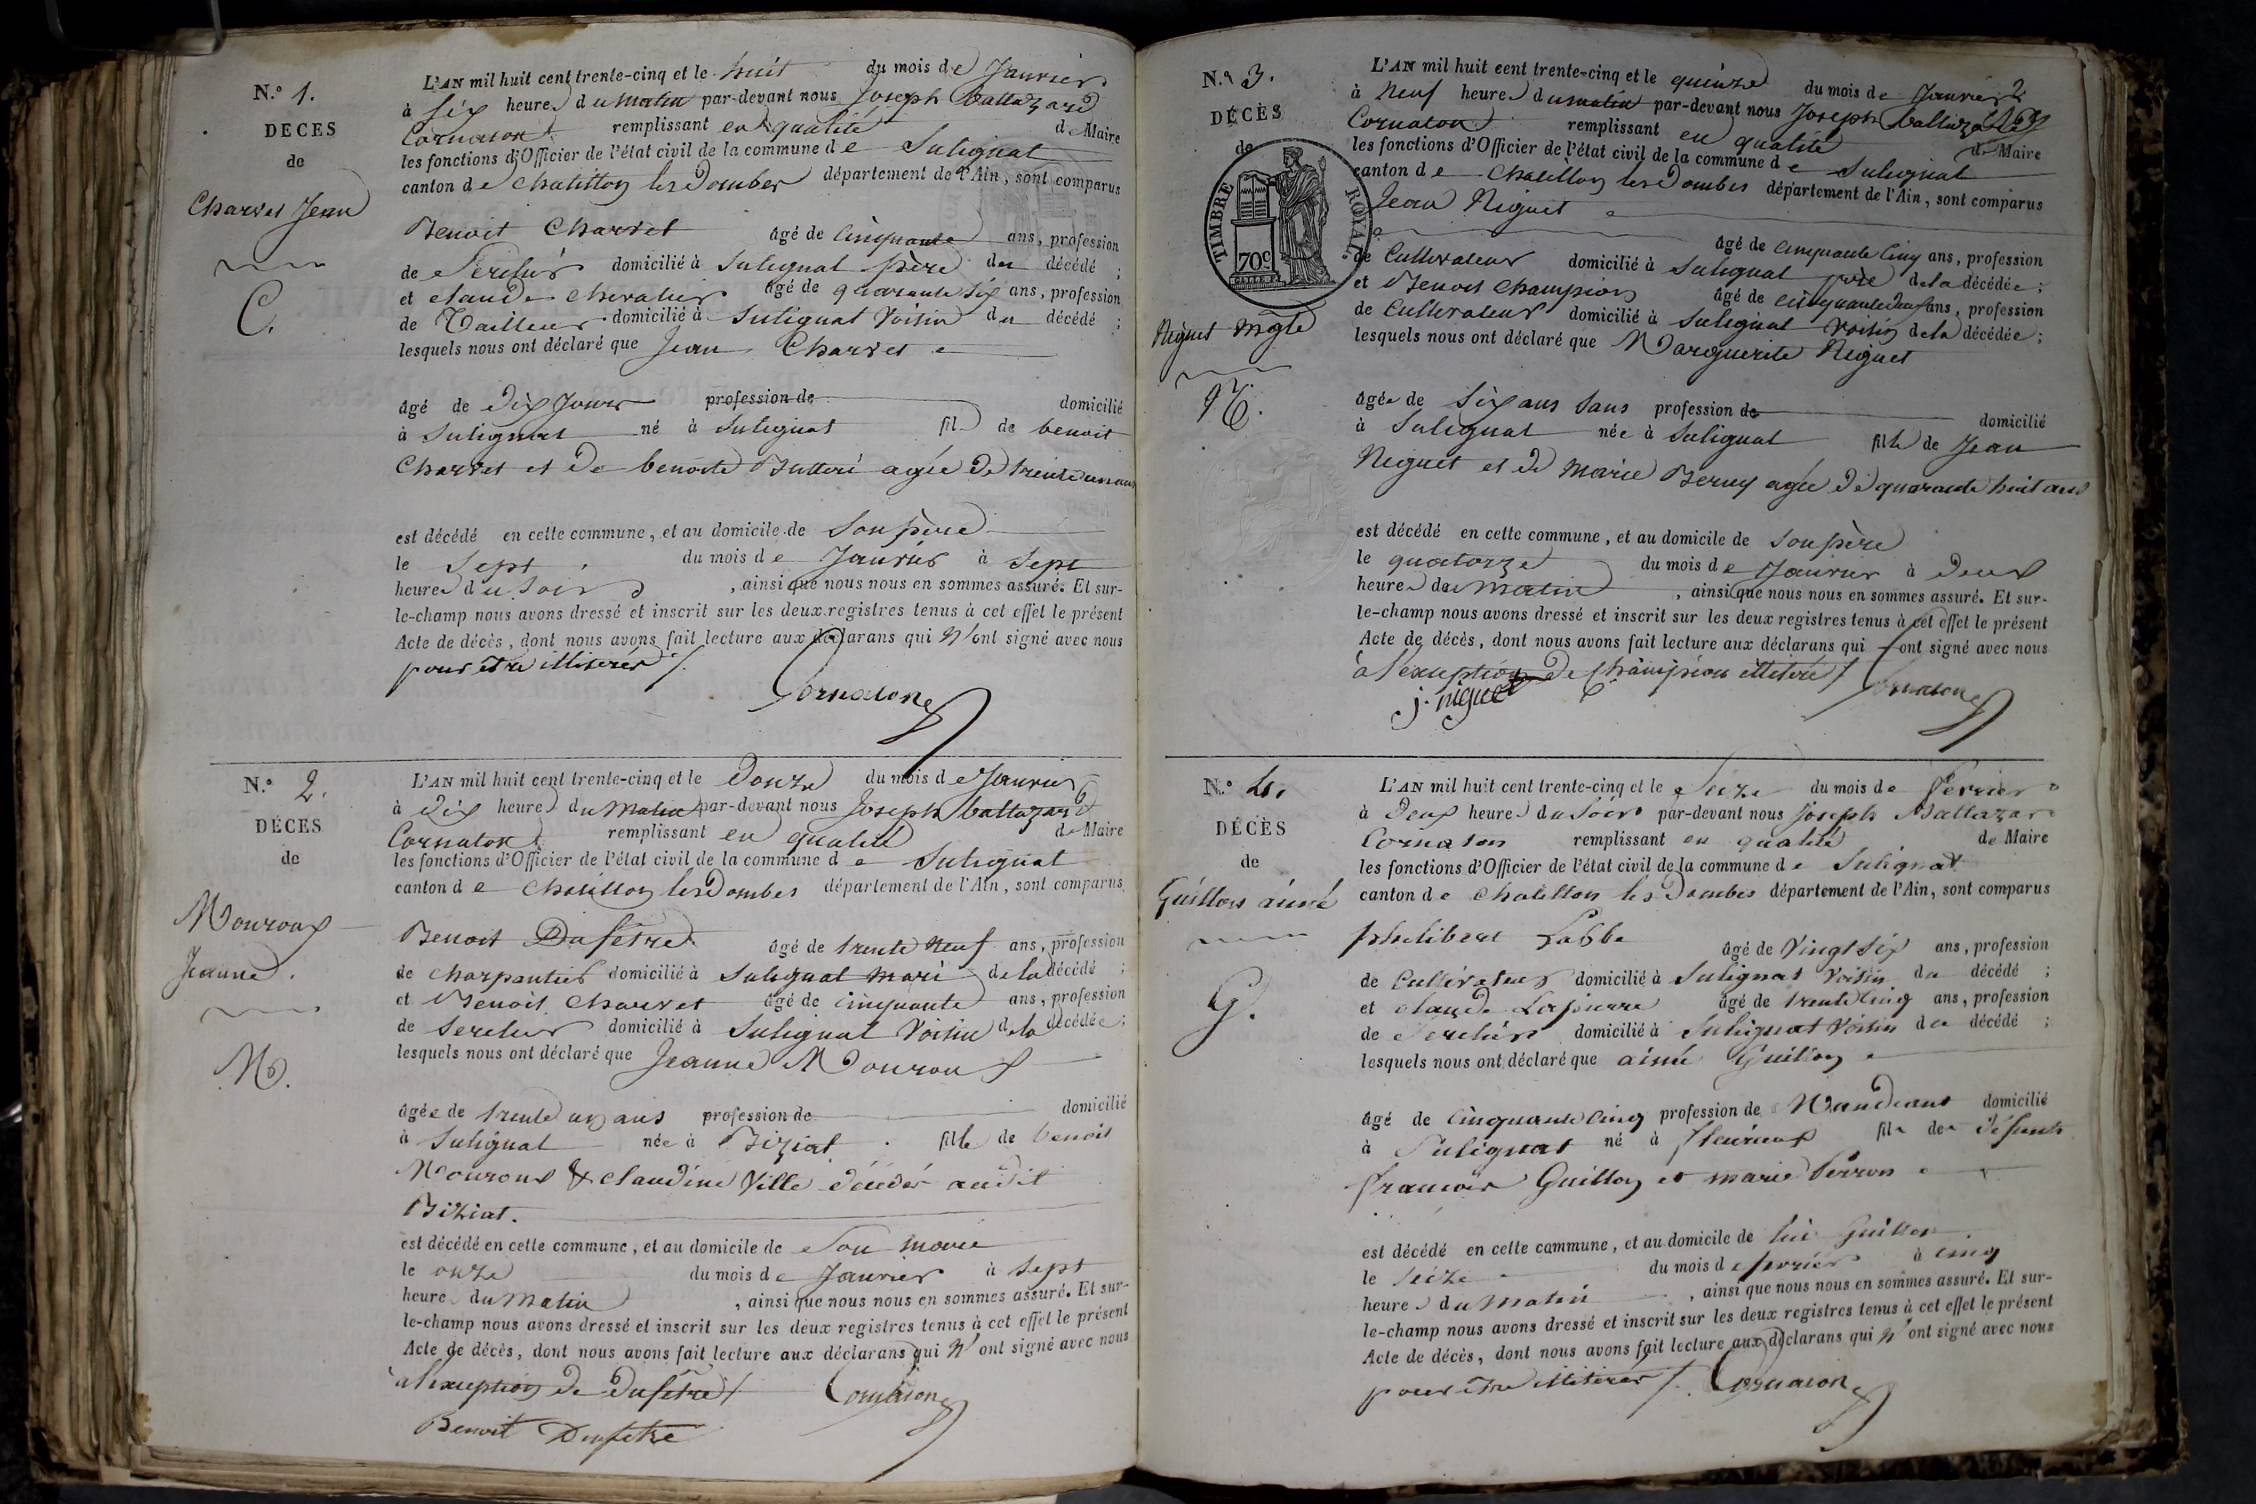 N.º 1.
DÉCES
de
Charvet Jean
C.
L'AN mil huit cent trente-cinq et le huit du mois de Janvier
à Six heures du matin par-devant nous Joseph Baltazard
Cornaton remplissant en qualité de Maire
les fonctions d'Officier de l'état civil de la commune de Sulignat
canton de Chatillon les Dombes département de l'Ain, sont comparus
Benoit Charvet âgé de Cinquante ans, profession
de domicilié à Sulignat père du décédé ;
et Claude Chevalier âgé de quarante Six ans, profession
de Tailleur domicilié à Sulignat Voisin du décédé ;
lesquels nous ont déclaré que Jean Charvet
âgé de Dix Jours profession de domicilié
à Sulignat né à Sulignat fils de benoit
Charvet et de benoite agée de trente un ans
est décédé en cette commune, et au domicile de Son père
le Sept du mois de Janvier à Sept
heures du Soir , ainsi que nous nous en sommes assuré. Et sur-
le-champ nous avons dressé et inscrit sur les deux registres tenus à cet effet le présent
Acte de décès, dont nous avons fait lecture aux déclarans qui n'ont signé avec nous
pour être illiterés /.
Cornaton
N.º 2.
DÉCES
de
Mouroux
Jeanne.
M.
L'AN mil huit cent trente-cinq et le Douze du mois de Janvier
à Dix heures du Matin par-devant nous Joseph baltazard
Cornaton remplissant en qualité de Maire
les fonctions d'Officier de l'état civil de la commune de Sulignat
canton de Chatillon les Dombes département de l'Ain, sont comparus
Benoit Dufetre âgé de trente Neuf ans, profession
de charpentier domicilié à Sulignat mari de la décédé ;
et Benoit Charvet âgé de Cinquante ans, profession
de domicilié à Sulignat Voisin de la décédée ;
lesquels nous ont déclaré que Jeanne Mouroux
âgée de trente un ans profession de domicilié
à Sulignat née à Biziat fille de benoit
Mouroux & Claudine Ville décédés audit
Biziat.
est décédé en cette commune, et au domicile de Son mari
le onze du mois de Janvier à Sept
heures du Matin , ainsi que nous nous en sommes assuré. Et sur-
le-champ nous avons dressé et inscrit sur les deux registres tenus à cet effet le présent
Acte de décès, dont nous avons fait lecture aux déclarans qui n'ont signé avec nous
à l'exception de Dufetre /
Cornaton
Benoit Dufetre
N.º 3.
DÉCÈS
de
TIMBRE ROYAL
70c
Niguet Mgte
N.
L'AN mil huit cent trente-cinq et le quinze du mois de Janvier
à Neuf heures du matin par-devant nous Joseph baltazard
Cornaton remplissant en qualité de Maire
les fonctions d'Officier de l'état civil de la commune de Sulignat
canton de Chatillon les Dombes département de l'Ain, sont comparus
Jean Niguet
âgé de Cinquante Cinq ans, profession
de Cultivateur domicilié à Sulignat père de la décédée ;
et Benoit Champion âgé de cinquante deux ans, profession
de Cultivateur domicilié à Sulignat Voisin de la décédée ;
lesquels nous ont déclaré que Marguerite Niguet
âgée de Six ans Sans profession de domicilié
à Sulignat née à Sulignat fille de Jean
Niguet et de Marie Berny agée de quarante huit ans
est décédé en cette commune, et au domicile de Son père
le quatorze du mois de Janvier à Deux
heures du Matin , ainsi que nous nous en sommes assuré. Et sur-
le-champ nous avons dressé et inscrit sur les deux registres tenus à cet effet le présent
Acte de décès, dont nous avons fait lecture aux déclarans qui ont signé avec nous
à l'exception de Champion illiteré /
j. niguet
Cornaton
N.º 4.
DÉCÈS
de
Guillon aimé
G.
L'AN mil huit cent trente-cinq et le Seize du mois de Février
à Deux heures du Soir par-devant nous Joseph Baltazar
Cornaton remplissant en qualité de Maire
les fonctions d'Officier de l'état civil de la commune de Sulignat
canton de Chatillon les Dombes département de l'Ain, sont comparus
philibert Labbe âgé de Vingt Six ans, profession
de Cultivateur domicilié à Sulignat Voisin du décédé ;
et Claude Lapierre âgé de trente Cinq ans, profession
de domicilié à Sulignat Voisin du décédé ;
lesquels nous ont déclaré que aimé Guillon
âgé de Cinquante Cinq profession de domicilié
à Sulignat né à fleurieux fils de défunts
francois Guillon et marie Perron
est décédé en cette commune, et au domicile de lui Guillon
le Seize du mois de février à Cinq
heures du Matin , ainsi que nous nous en sommes assuré. Et sur-
le-champ nous avons dressé et inscrit sur les deux registres tenus à cet effet le présent
Acte de décès, dont nous avons fait lecture aux déclarans qui n'ont signé avec nous
pour être illiterés /.
Cornaton